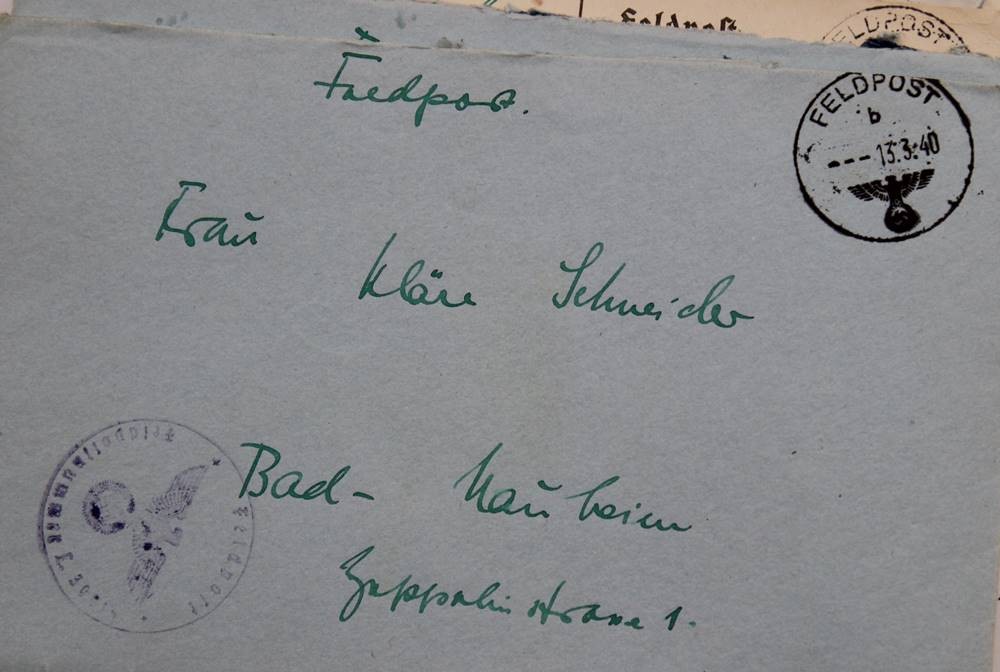 Feldpost
FELDPOST
Feldpost.
FELDPOST
b
---13.3.40
Frau
Kläre Schneider
Bad-Nauheim
Zeppelinstrasse 1.
Feldpost